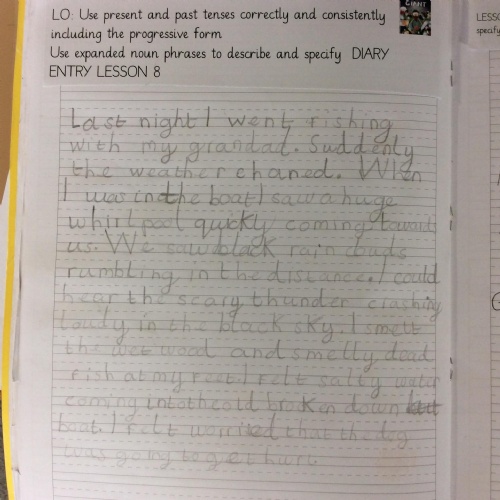 LO: Use present and past tenses correctly and consistently
including the progressive form
Use expanded noun phrases to describe and specify DIARY
ENTRY LESSON 8
Last night I went fishing
with my grandad. Suddenly
the weather chaned. When
I was in the boat I saw a huge
whirlpool quickly coming toward
us. We saw black rain clouds
rumbling in the distance. I could
hear the scary thunder crashing
loudy in the black sky. I smelt
the wet wood and smelly dead
fish at my feet. I felt salty water
coming into the old broken down
boat. I felt worried that the dog
was going to get hurt.
LESSO
specify